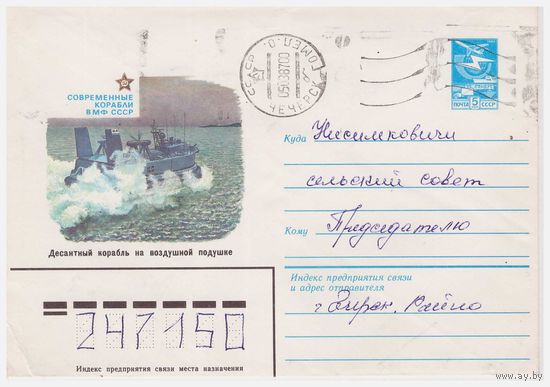 СОВРЕМЕННЫЕ
КОРАБЛИ
ВМФ СССР
ЧЕЧЕРСК
ПОЧТА 5 СССР
Десантный корабль на воздушной подушке
Куда Нисимковичи
сельский совет
Кому Председателю
Индекс предприятия связи
и адрес отправителя
247150
Индекс предприятия связи места назначения
www.ay.by